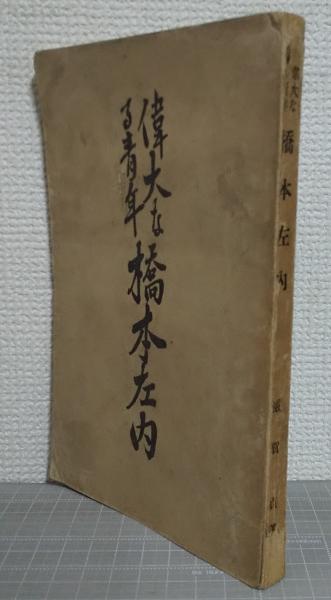 偉大な
る青年
橋本左内
偉大な
橋本左内
滋賀貞